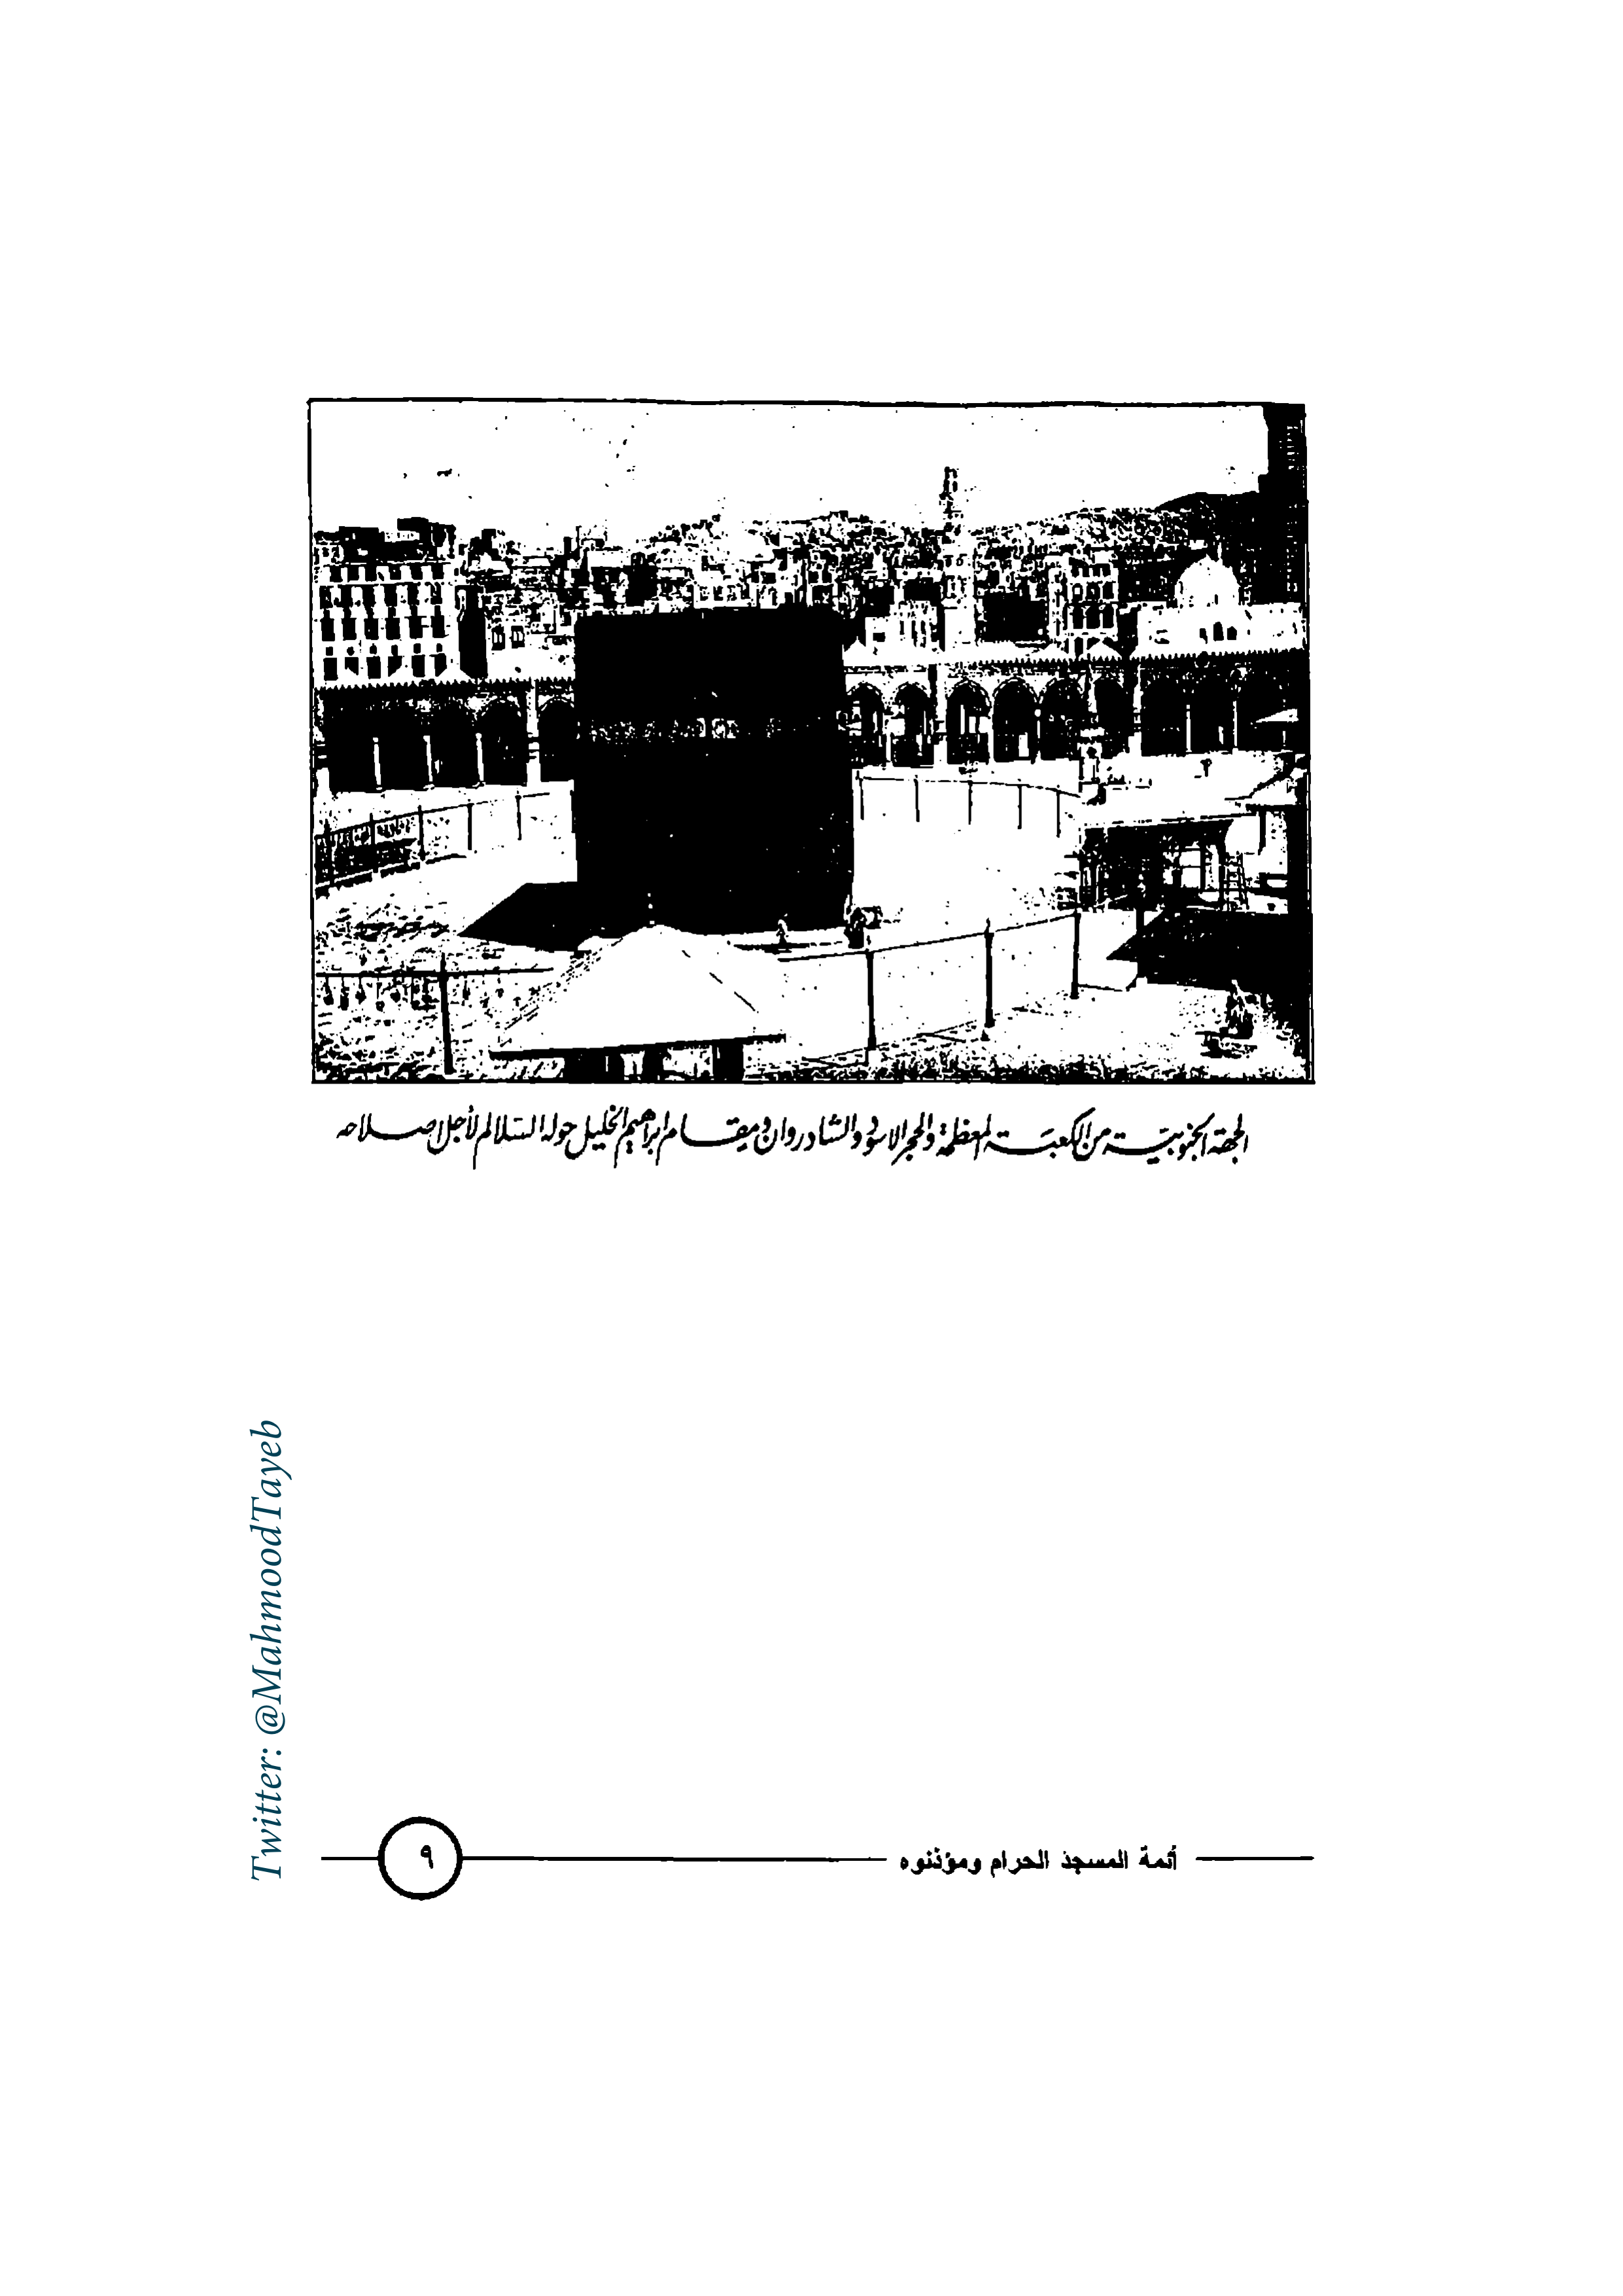 الجهة الجنوبية من الكعبة المعظمة والحجر الاسود والشادروان ومقام ابراهيم الخليل حوله السلالم لأجل اصلاحه
Twitter: @MahmoodTayeb
أئمة المسجد الحرام ومؤذنوه
٩